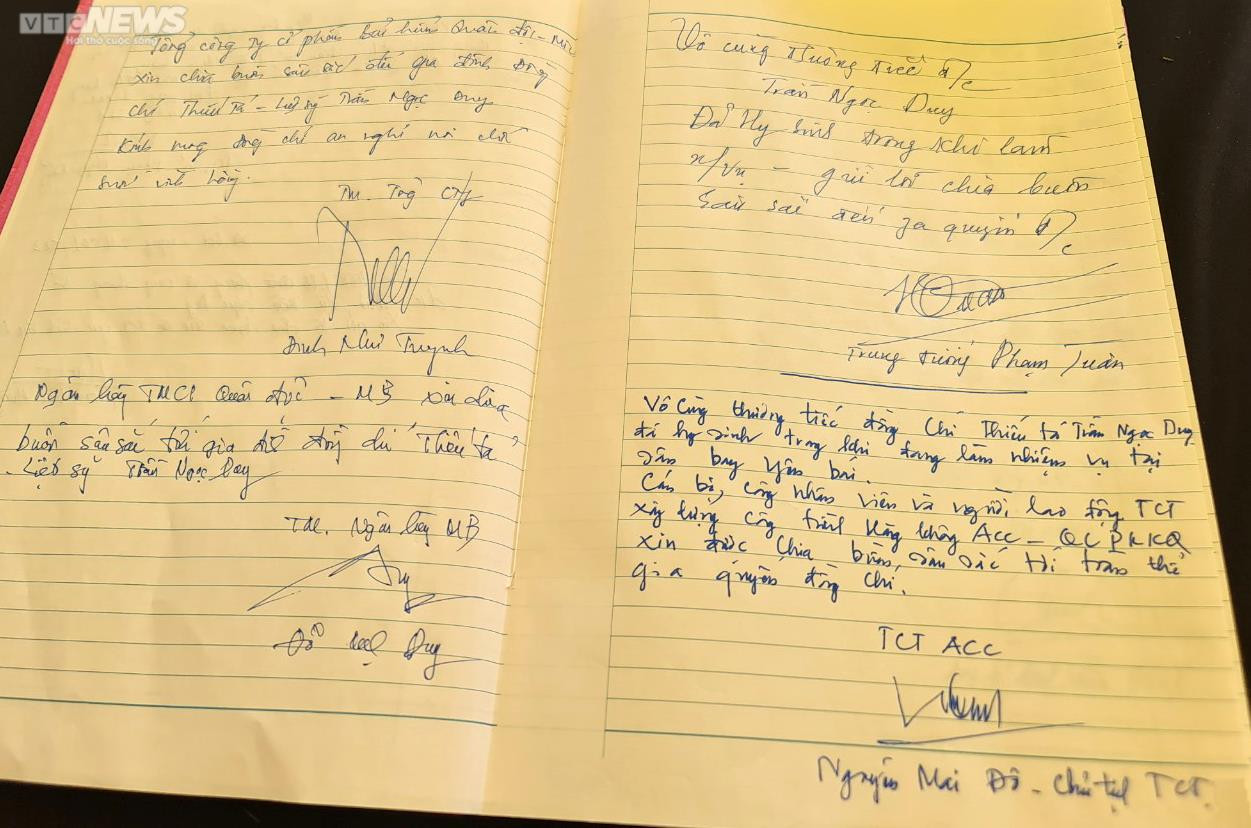 VTC NEWS
Hơi thở cuộc sống
Tổng công ty cổ phần Bảo hiểm Quân đội - MIC
xin chia buồn sâu sắc đến gia đình Đồng
chí Thiếu tá - Liệt sỹ Trần Ngọc Duy
Kính mong đồng chí an nghỉ nơi chốn
vĩnh hằng.
TM. Tổng CTy
Đinh Như Tuynh
Ngân hàng TMCP Quân đội - MB xin chia
buồn sâu sắc tới gia đình đồng chí Thiếu tá
- Liệt sỹ Trần Ngọc Duy
TM. Ngân hàng MB
Duy
Vô cùng thương tiếc đ/c
Trần Ngọc Duy
Đã Hy sinh trong khi làm
n/vụ - gửi lời chia buồn
sâu sắc đến gia quyến đ/c
Trung tướng Phạm Tuân
Vô cùng thương tiếc đồng chí Thiếu tá Trần Ngọc Duy
đã hy sinh trong khi đang làm nhiệm vụ tại
sân bay Yên bái.
Cán bộ, công nhân viên và người lao động TCT
xây dựng công trình hàng không ACC - QCPKKQ
xin được chia buồn, sâu sắc tới toàn thể
gia quyến đồng chí.
TCT ACC
Nguyễn Mai Đô - Chủ tịch TCT.